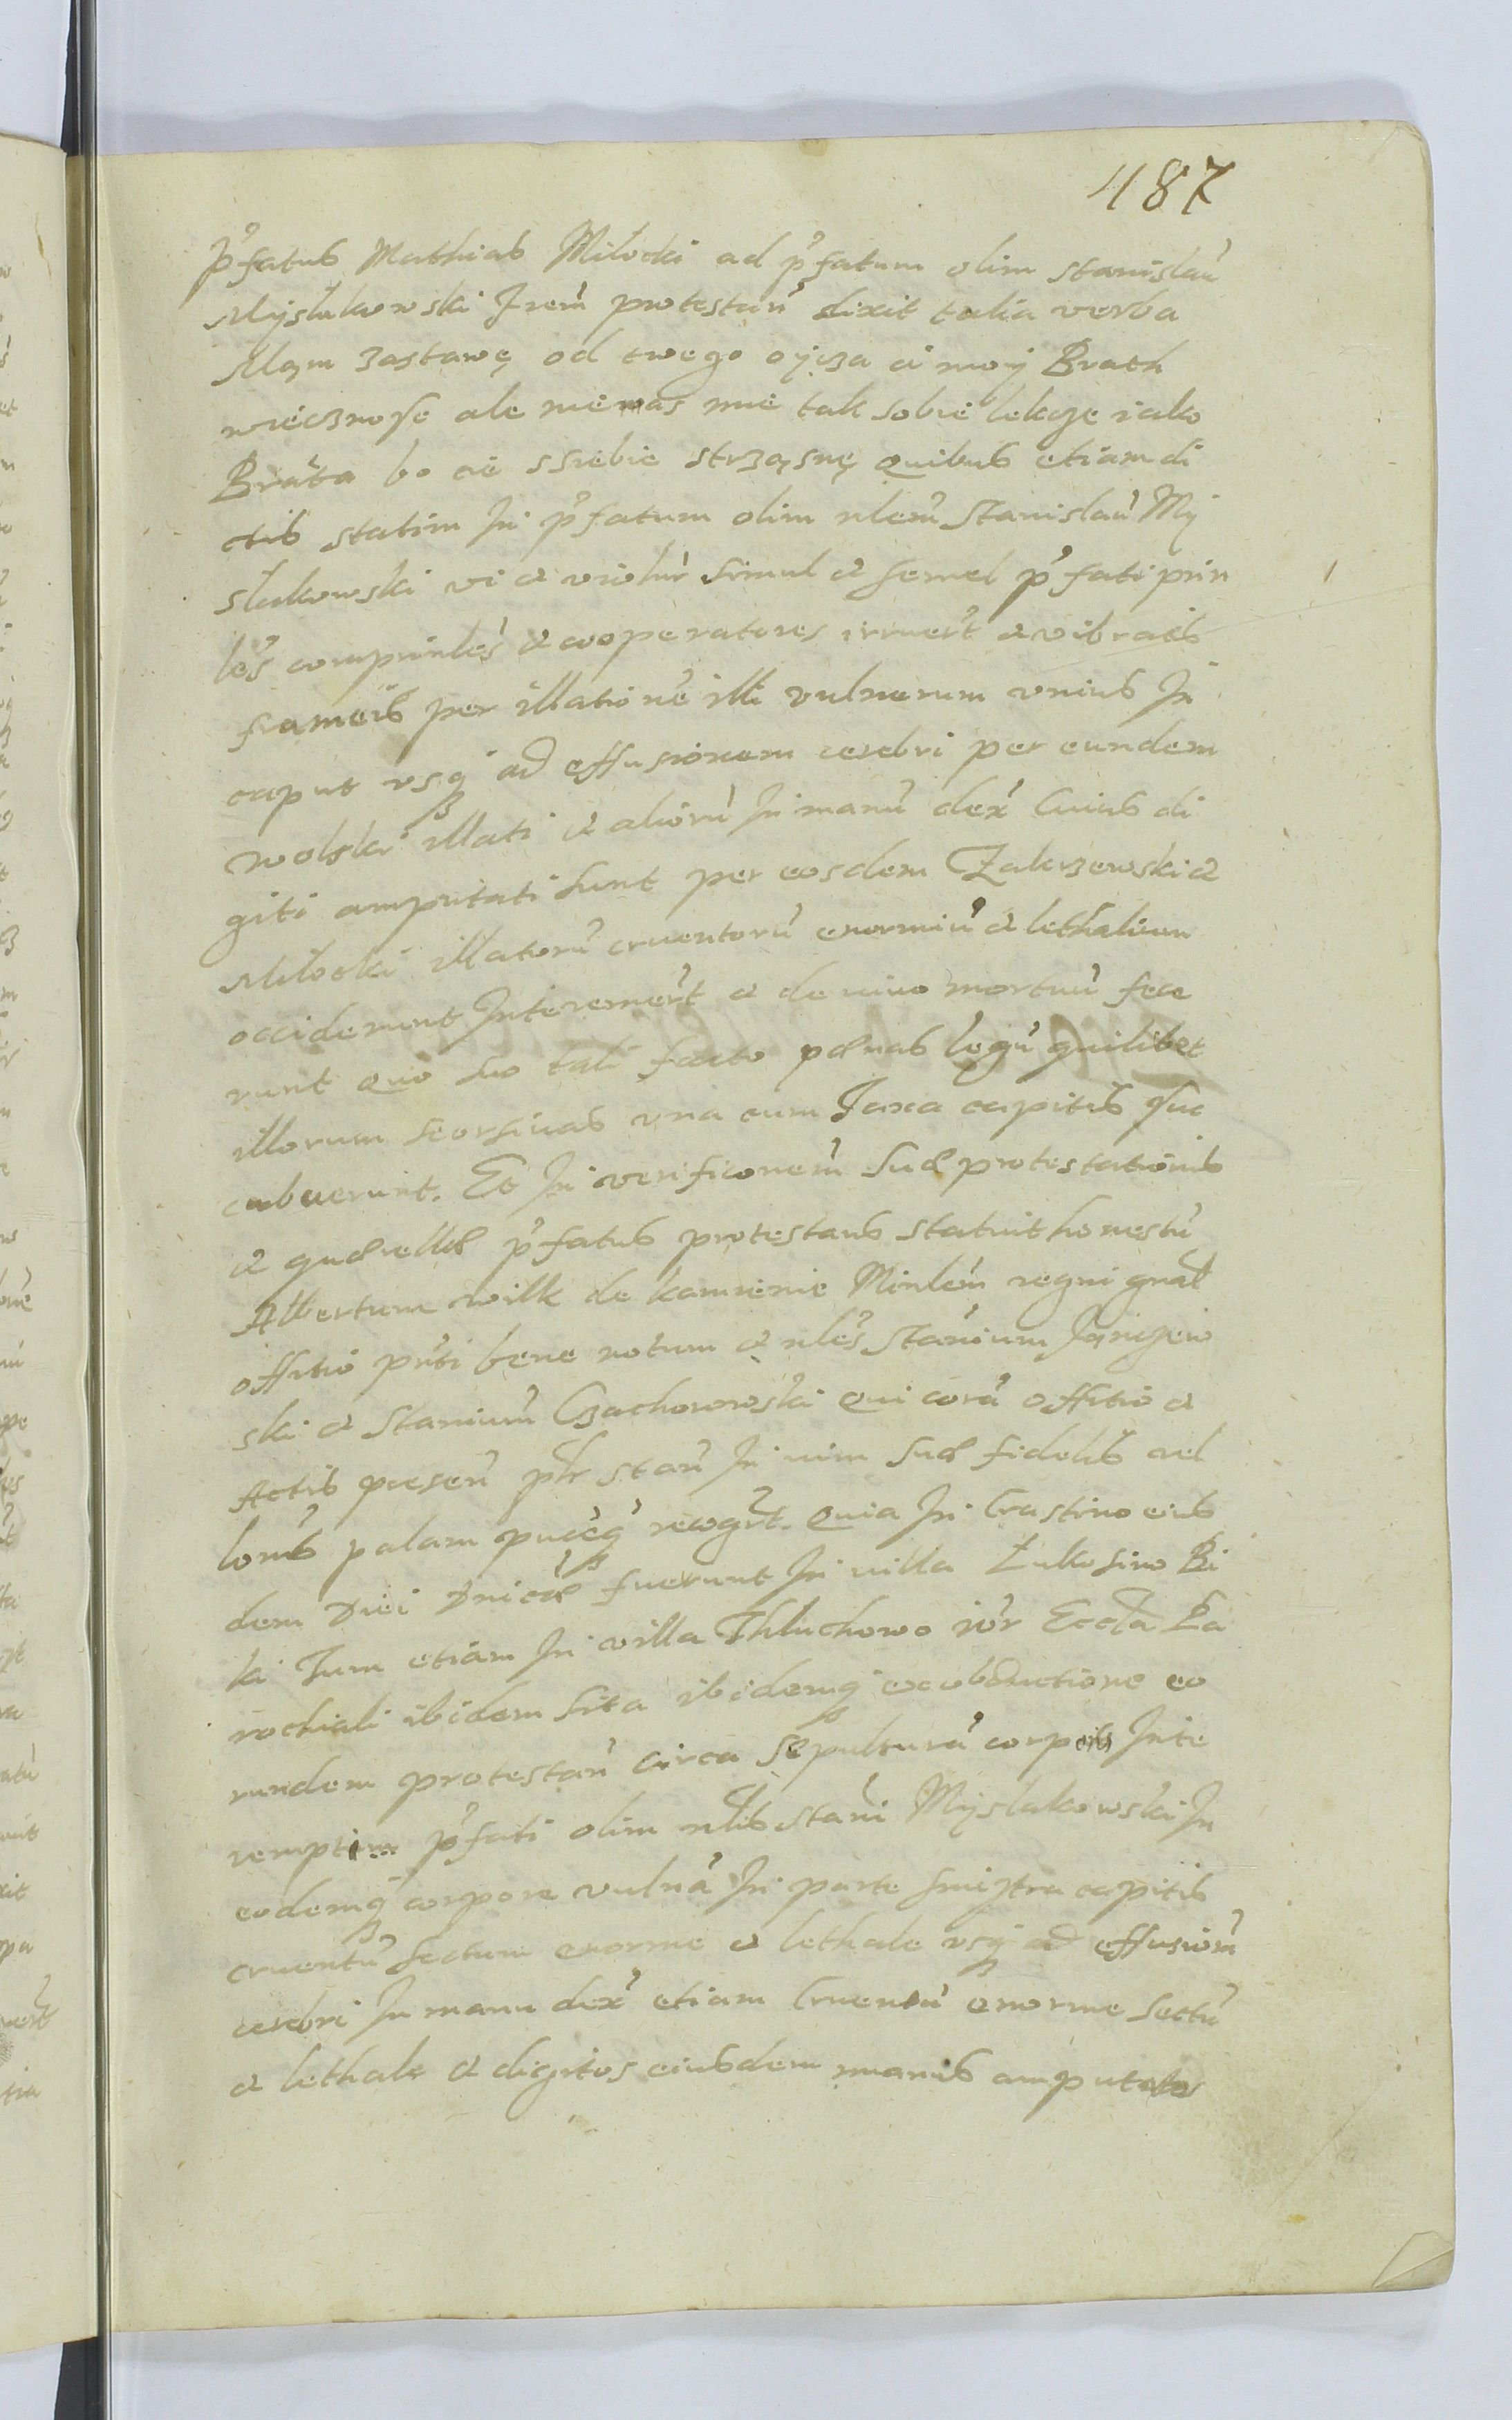 487
p̃fatus Mathias Miłocki ad p̃fatum olim Stanislaũ
Mysłakowski frem̃ protestan̄ dixit talia verba
Mąm zastawę od twego oyca a moy Brath
wiecznosc ale niemas mie tak sobie lekcze iako
Brata bo cie ssiebie strząsnę Quibus etiam di
ctis statim In p̃fatum olim nlem̃ Stanislaũ My
słakowski vi et violnr̃ simul et semel p̃fati prin
les̃ comprinles̃ et cooperatores irruer̃t et vibratis
frameis per illationẽ illi vulnerum vnius In
caput vsq̃ ad effusionem cerebri per eundem
Wolski illati et aliorũ In manũ dex̃ Cuius di
giti amputati sunt per eosdem Zakrzewski et
Miłocki illatorũ cruentorũ enormiũ et lethalium
occiderunt Interemer̃t et de viuo mortuũ fece
runt Quo suo tali facto pænas legũ quilibet
illorum seorsiuas vna cum Taxa capitis suc
cubuerunt. Et In verificonem̃ suæ protestationis
et quærellæ p̃fatus protestans statuit honestũ
Albertum Wilk de kamienie Minlem̃ regni gnal̃
offitio pñti bene notum et nles̃ Stanium
ski et Stanium̃ Czachorowski Qui corã offitio et
Actis presen̄ plr̃ stan̄ In vim suæ fidelis rel
lonis̃ palam puceq̃ recogr̃t. Quia In Crastino eius
dem diei Dnicæ fuerunt In villa Zukosino Bi
ki Tum etiam In villa Thłuchowo in Eccl̃a Pa
rochiali ibidem sita ibidemq̃ ex obductione eo
rundem protestan̄ circa sepulturã corporis Inte
rempti p̃fati olim nlis̃ Stani Mysłakowski In
eodemq̃ corpore vulnã In parte sinistra capitis
cruentũ sectum enorme et lethale vsq̃ ad effusiom̃
cerebri In manu dex̃ etiam Cruentũ enorme sectũ
et lethale et digitos eiusdem manus amputatos